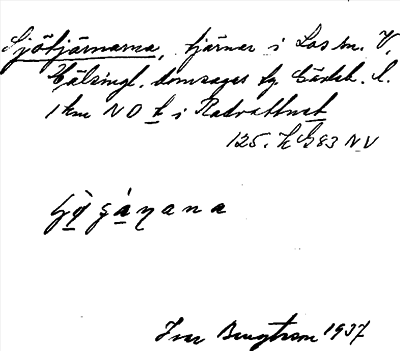 Sjötjärnarna, tjärnar i Los sn. V.
Hälsingl. domsagas tg Gävleb. l.
1 km NO k i Radvattnet
125. h G 83 NV
Ivar Bengtsson 1937